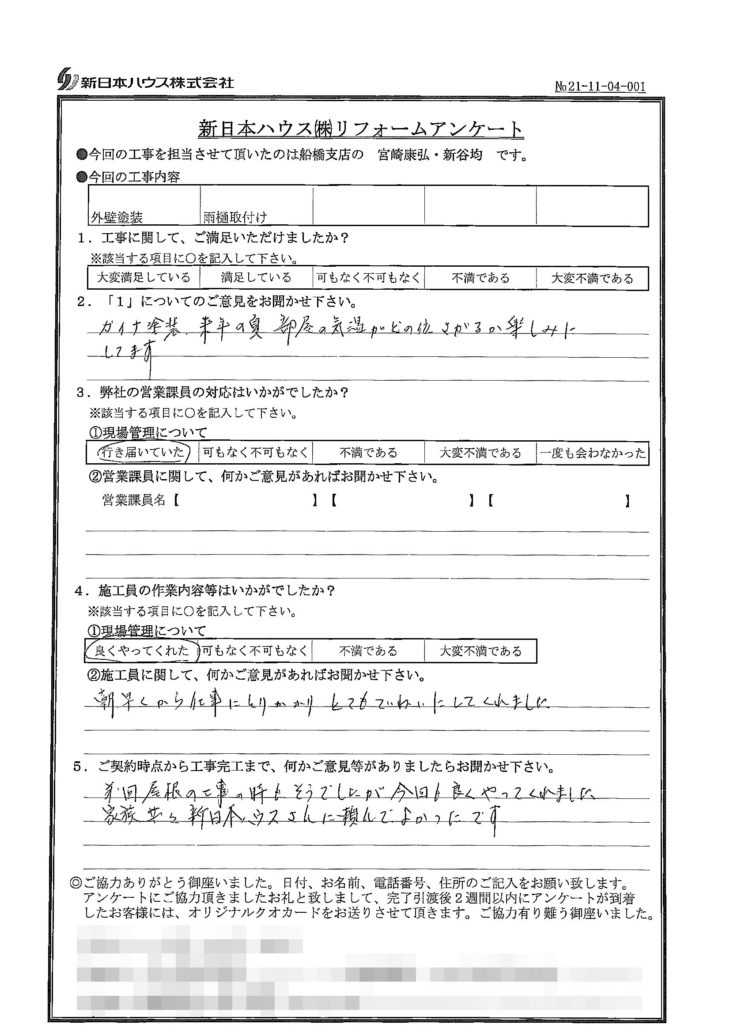 新日本ハウス株式会社
№21-11-04-001
新日本ハウス㈱リフォームアンケート
●今回の工事を担当させて頂いたのは船橋支店の 宮崎康弘・新谷均 です。
●今回の工事内容
外壁塗装 雨樋取付け
1．工事に関して、ご満足いただけましたか？
※該当する項目に○を記入して下さい。
大変満足している 満足している 可もなく不可もなく 不満である 大変不満である
2．「1」についてのご意見をお聞かせ下さい。
ガイナ塗装、来年の夏 部屋の気温がどの位さがるか楽しみに
してます
3．弊社の営業課員の対応はいかがでしたか？
※該当する項目に○を記入して下さい。
①現場管理について
行き届いていた 可もなく不可もなく 不満である 大変不満である 一度も会わなかった
②営業課員に関して、何かご意見があればお聞かせ下さい。
営業課員名【 】【 】【 】
4．施工員の作業内容等はいかがでしたか？
※該当する項目に○を記入して下さい。
①現場管理について
良くやってくれた 可もなく不可もなく 不満である 大変不満である
②施工員に関して、何かご意見があればお聞かせ下さい。
朝早くから仕事にとりかかり とてもていねいにしてくれました
5．ご契約時点から工事完工まで、何かご意見等がありましたらお聞かせ下さい。
前回屋根の工事の時もそうでしたが今回も良くやってくれました
家族共々新日本ハウスさんに頼んでよかったです
◎ご協力ありがとう御座いました。日付、お名前、電話番号、住所のご記入をお願い致します。
アンケートにご協力頂きましたお礼と致しまして、完了引渡後２週間以内にアンケートが到着
したお客様には、オリジナルクオカードをお送りさせて頂きます。ご協力有り難う御座いました。